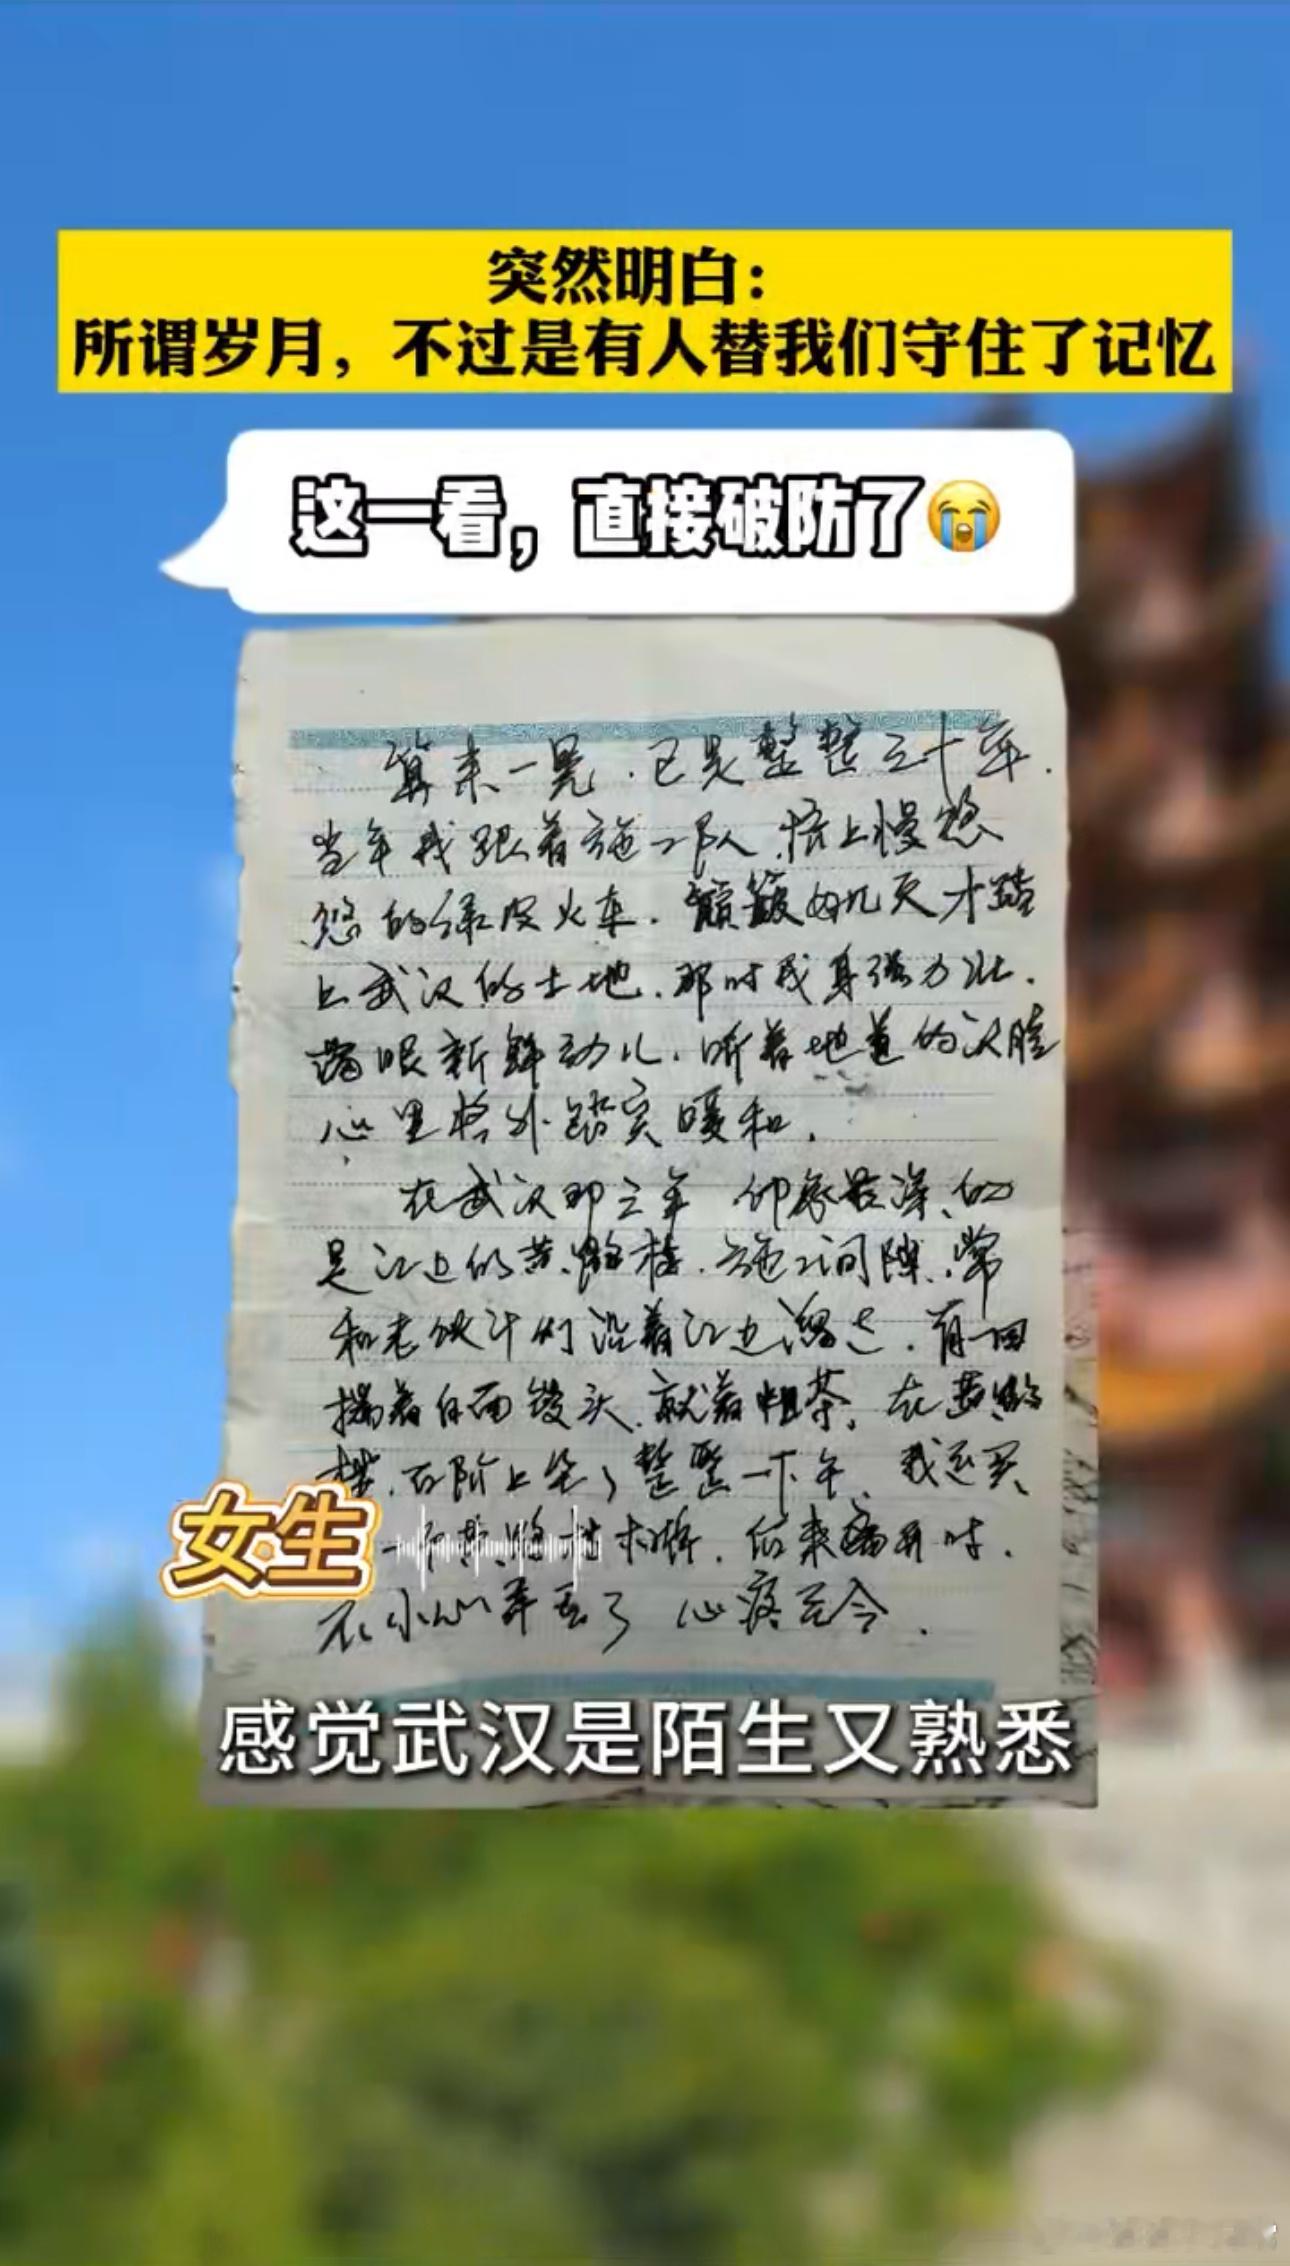 突然明白：
所谓岁月，不过是有人替我们守住了记忆
这一看，直接破防了😭
算来一晃，已是整整三十年．
当年我跟着施工队，搭上慢悠
悠的绿皮火车．颠簸好几天才踏
上武汉的土地．那时我身强力壮．
满眼新鲜劲儿．听着地道的汉腔
心里格外踏实暖和．
在武汉那三年 印象最深的
是江边的黄鹤楼．施工间隙，常
和老伙计们沿着江边溜达．有一回
揣着白面馒头，就着粗茶，在黄鹤
楼石阶上坐了整整一下午．我还买
后来搬开时．
不小心弄丢了 心疼至今．
女生
感觉武汉是陌生又熟悉